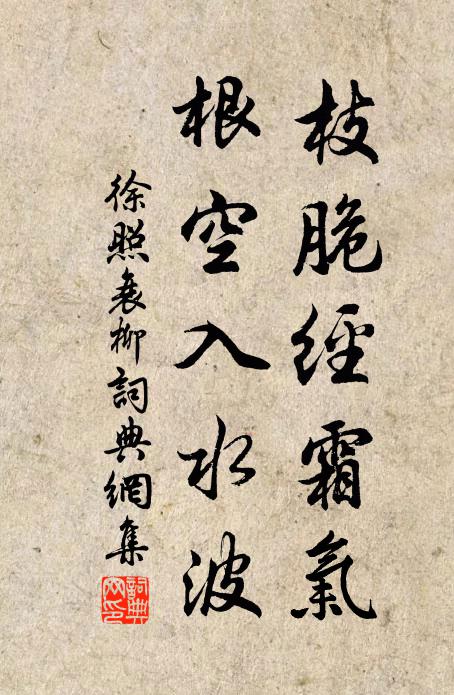 枝脆經霜氣
根空入水波
徐照衰柳詞典網集
詞典网印